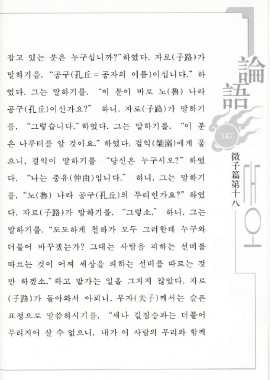 잡고 있는 분은 누구십니까?"하였다. 자로(子路)가
말하기를, "공구(孔丘=공자의 이름)이십니다." 하
였다. 그는 말하기를, "이 분이 바로 노(魯) 나라
공구(孔丘)이신가요?" 하니, 자로(子路)가 말하기
를, "그렇습니다."하였다. 그는 말하기를, "이 분
은 나루터를 알 것이요."하였다. 걸익(桀溺)에게 물
으니, 걸익이 말하기를 "당신은 누구시오?" 하였
다. "나는 중유(仲由)입니다." 하니, 그는 말하기
를, "노(魯) 나라 공구(孔丘)의 무리인가요?" 하였
다. 자로(子路)가 말하기를, "그렇소." 하니, 그는
말하기를, "도도하게 천하가 모두 그러한데 누구와
더불어 바꾸겠는가? 그대는 사람을 피하는 선비를
따르는 것이 어찌 세상을 피하는 선비를 따르는 것
만 하겠소."하고 밭가는 일을 그치지 않았다. 자로
(子路)가 돌아와서 아뢰니, 부자(夫子)께서는 슬픈
표정으로 말씀하시기를, "새나 길짐승과는 더불어
무리지어 살 수 없으니, 내가 이 사람의 무리와 함께
論語
547
微子篇第十八